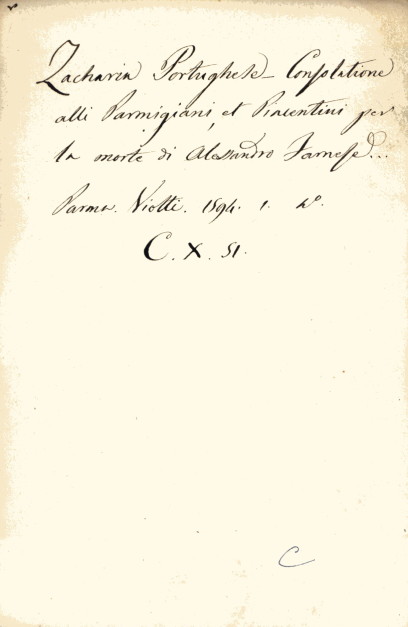 Zacharia Portughese - Consolatione
alli Parmigiani, et Piacentini per
la morte di Alessandro Farnese...
Parma. Viotti. 1594. 1. 4º.
C. X. 51.
C